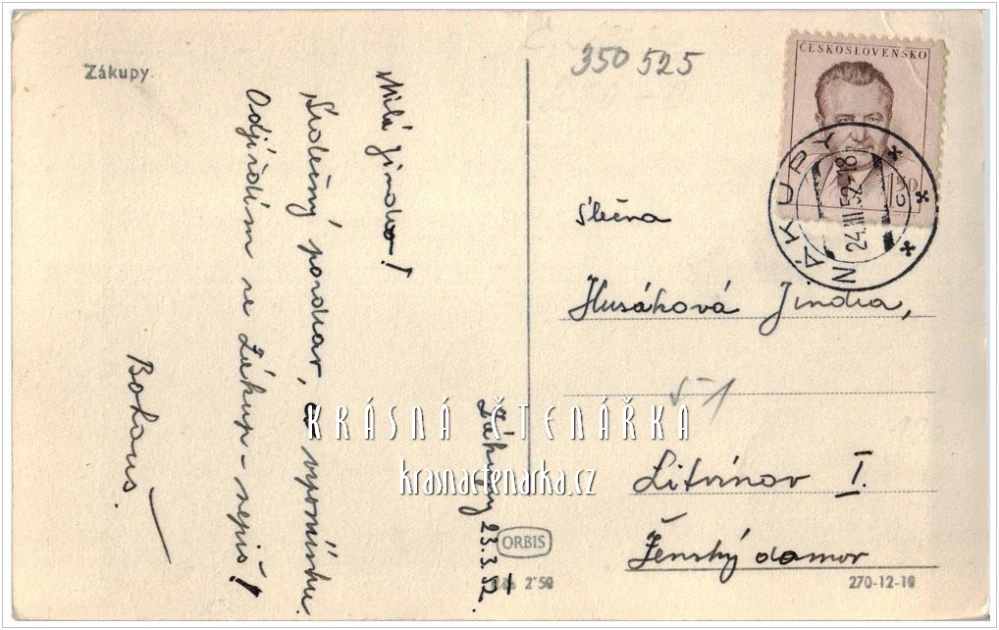 Zákupy.
Zákupy 23.3.52.
Milá Jindro!
Srdečný pozdrav, a vzpomínku.
Odjíždím ze Zákup - nepiš!
Bohouš.
350 525
ČESKOSLOVENSKO
1,50
ZÁKUPY
24.III.52-18
c
Slečna
Husáková Jindra,
Litvínov I.
Ženský domov
ORBIS
2˙50
270-12-10
KRÁSNÁ ČTENÁŘKA
krasnactenarka.cz